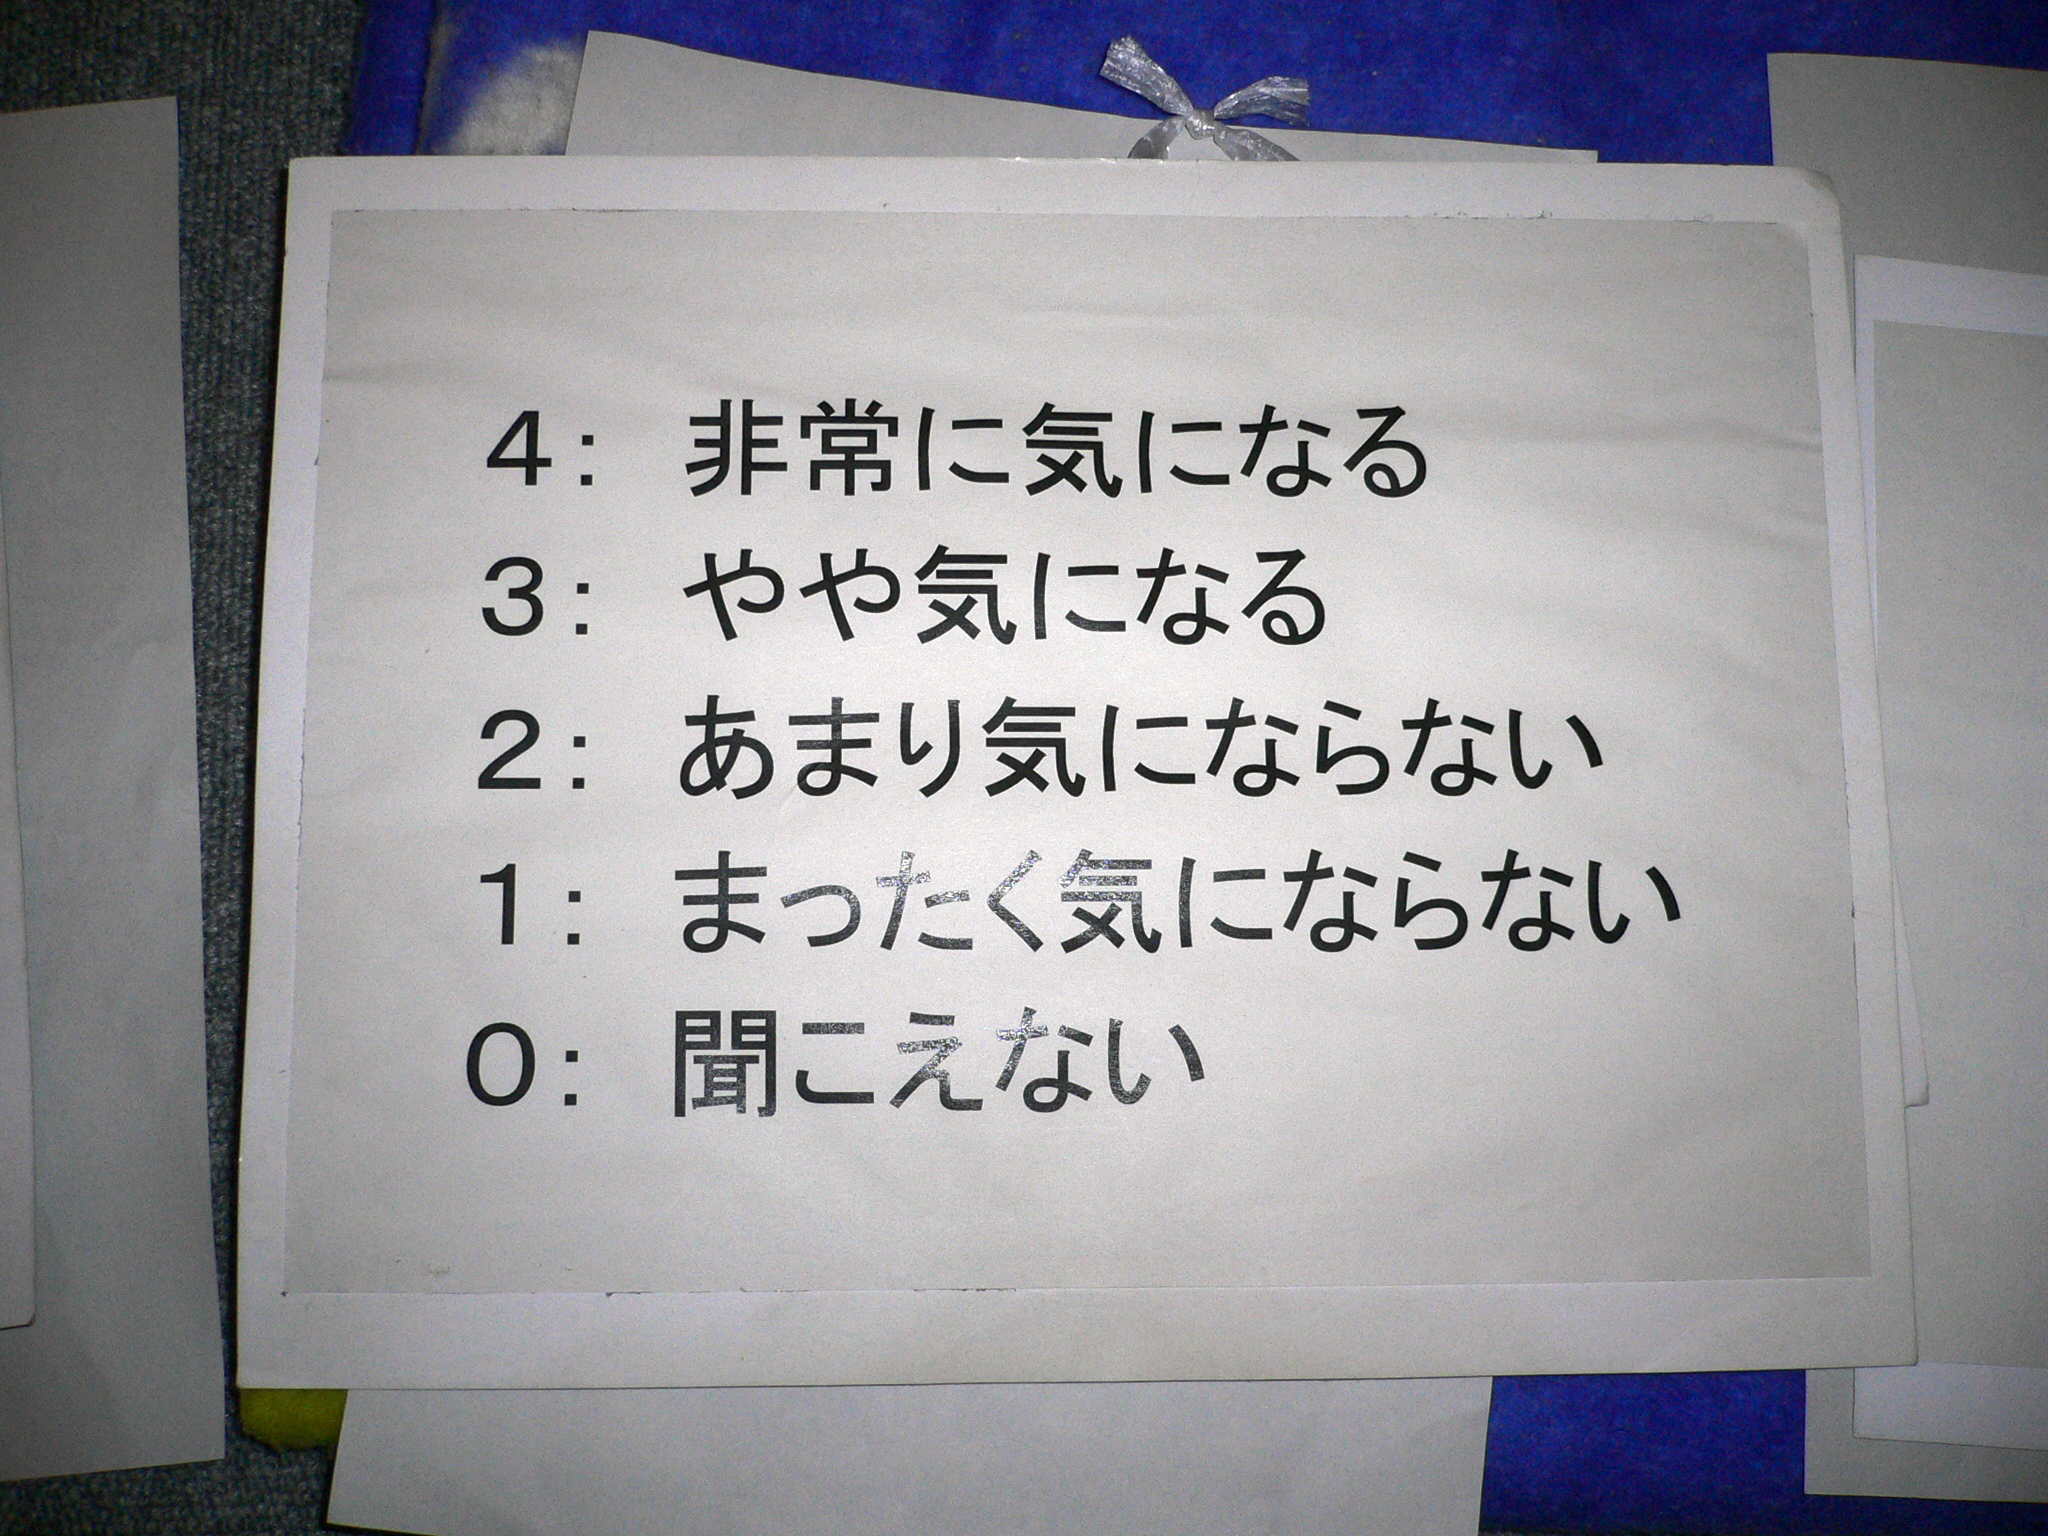 4： 非常に気になる
3： やや気になる
2： あまり気にならない
1： まったく気にならない
0： 聞こえない